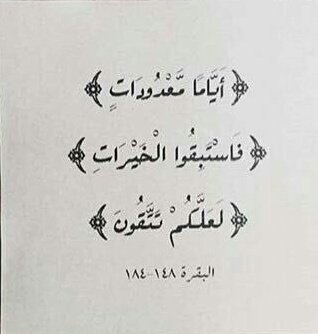 ﴿ أَيَّامًا مَّعْدُودَاتٍ ﴾
﴿ فَاسْتَبِقُوا الْخَيْرَاتِ ﴾
﴿ لَعَلَّكُمْ تَتَّقُونَ ﴾
البقرة ١٤٨-١٨٤